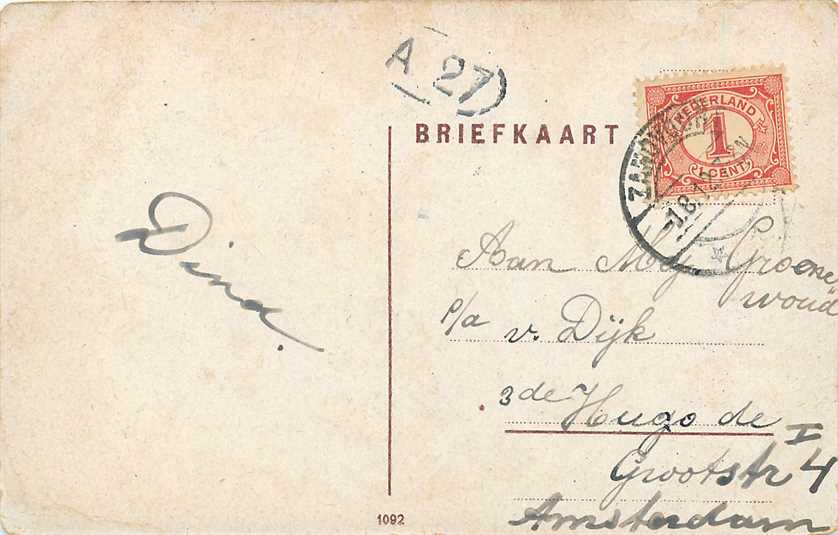 A 27
BRIEFKAART
NEDERLAND
1
CENT
Dind.
Aan Mej Groene
woud
p/a v. Dijk
3de Hugo de
Grootstr 4 I
Amsterdam
1092